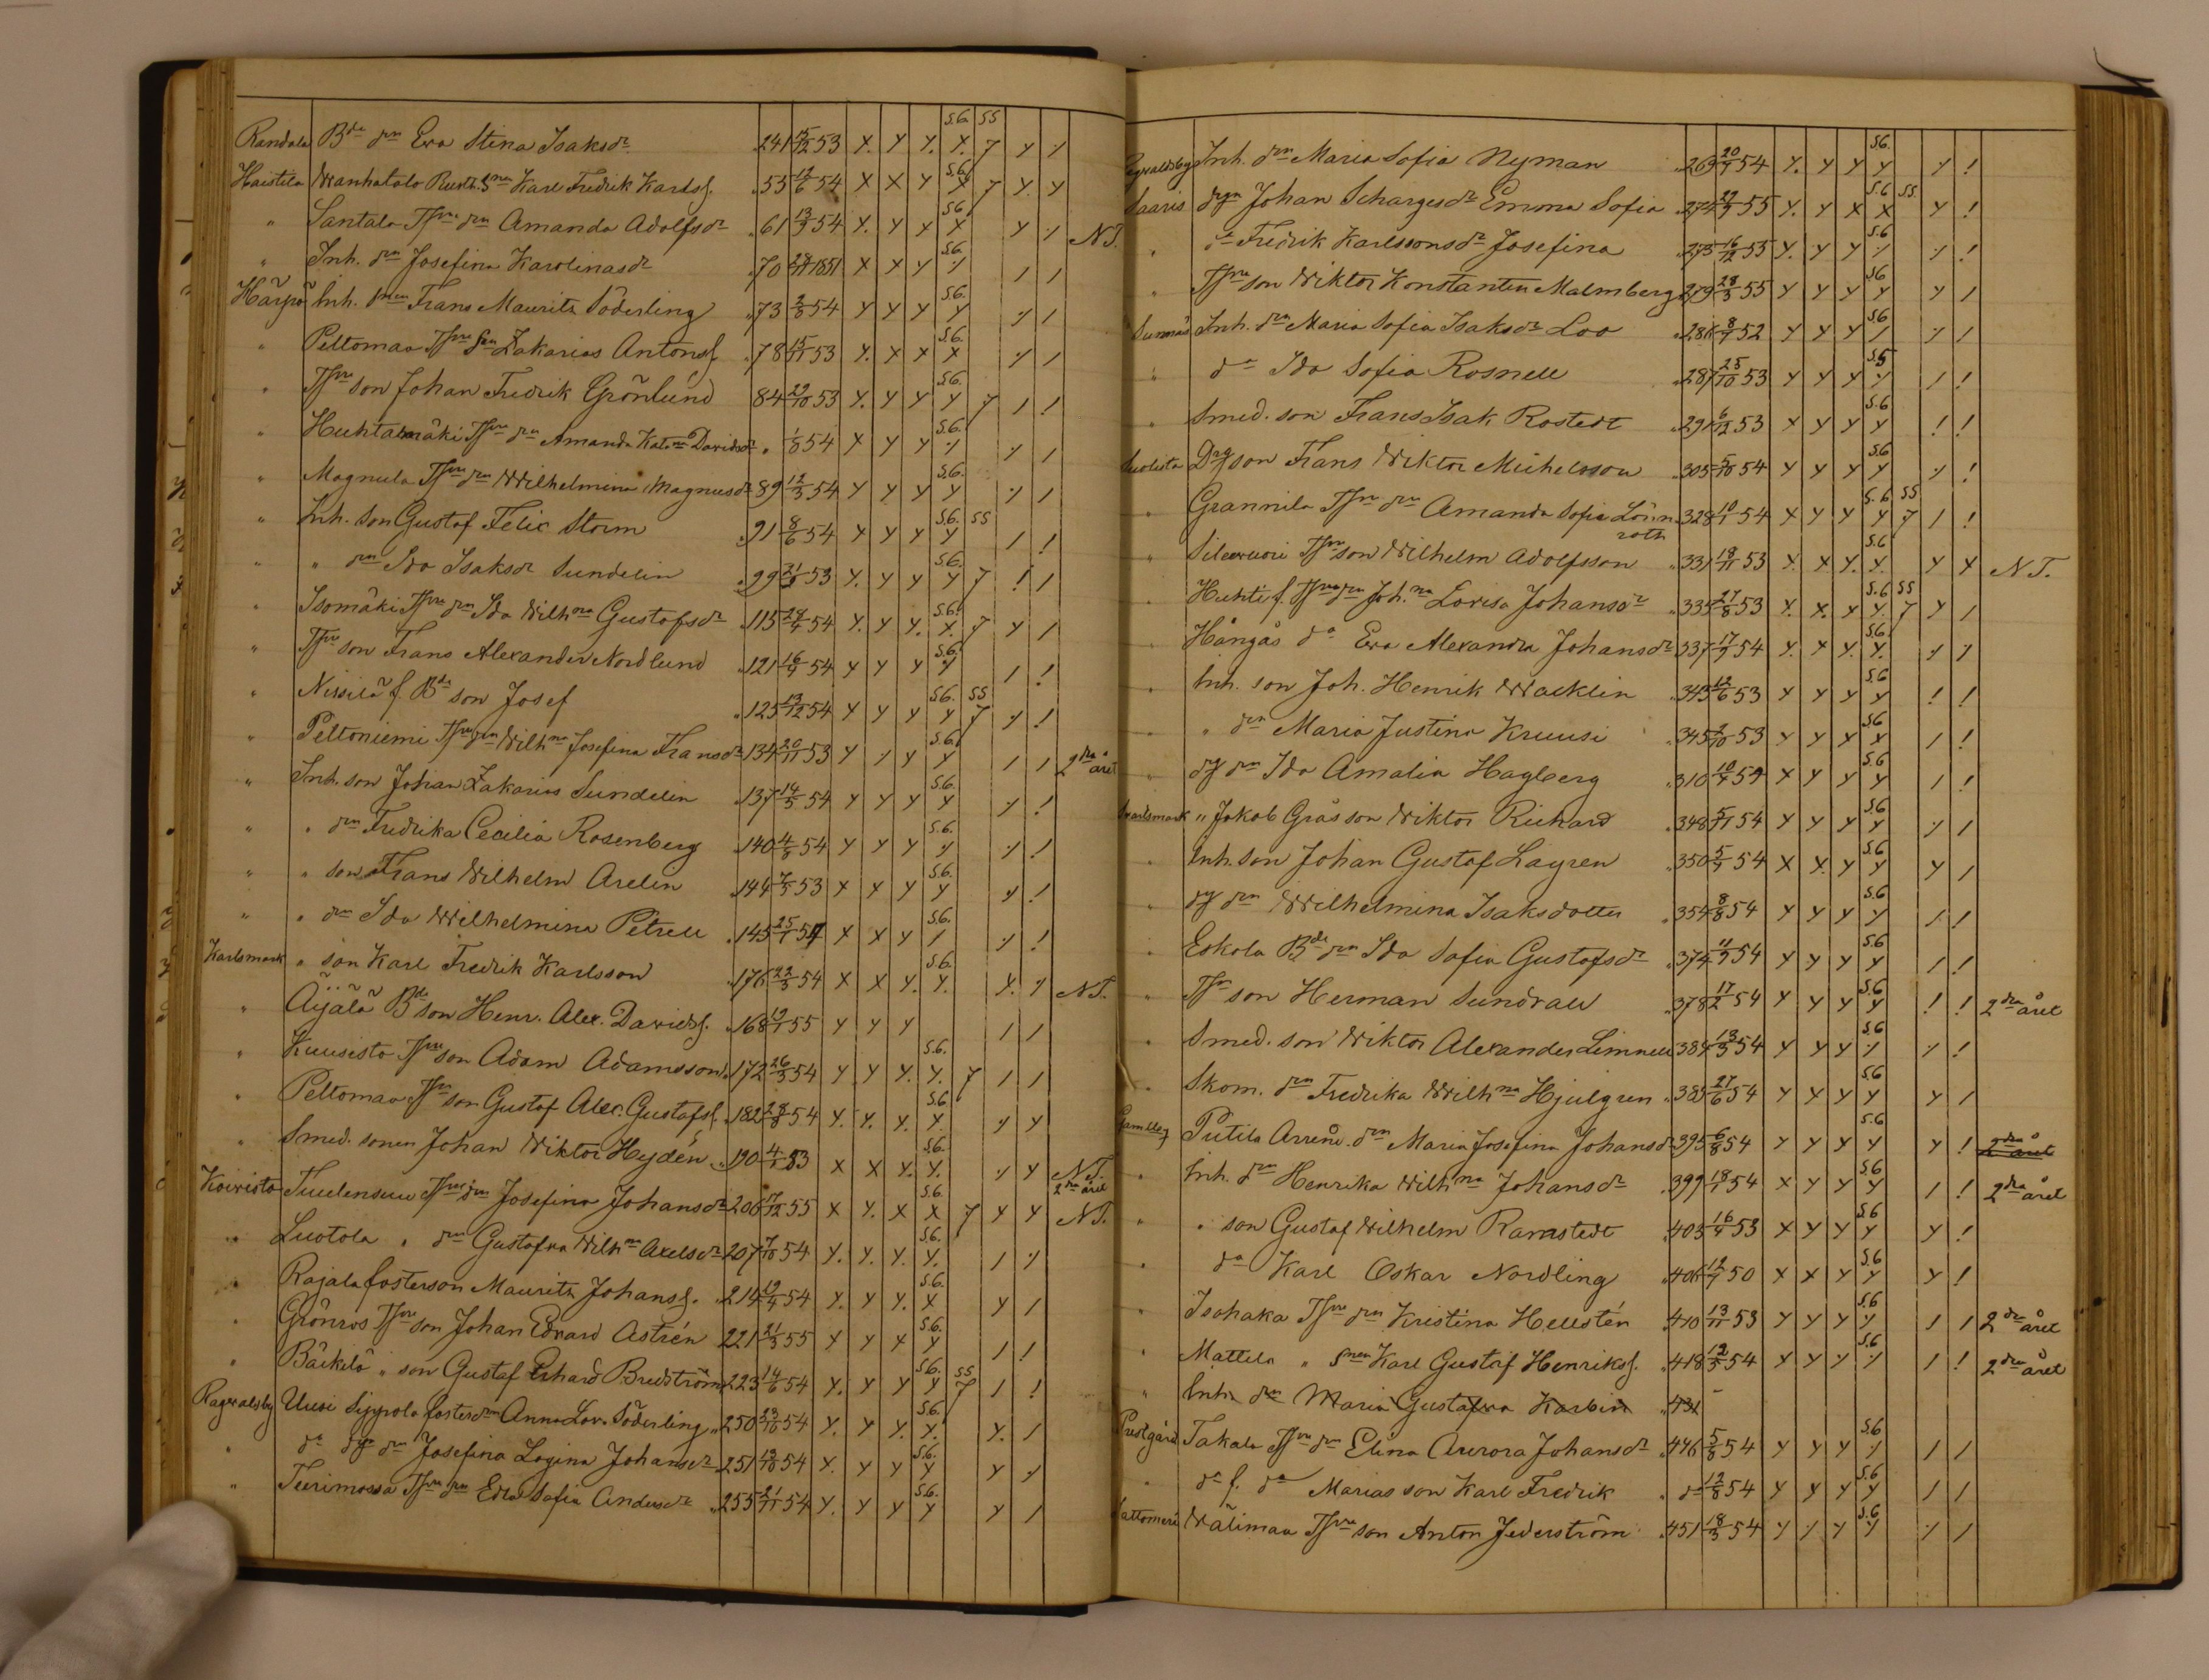 S.6. SS
Randala Bde drn Eva Stina Isaksdr 241 15/12 53 X. Y Y. X. 7 Y ⁒
Haistila Wanhatalo Rusth. Snen Karl Fredrik Karlss. 55 12/6 54 X X Y S.6. X 7 Y. Y
" Santala Tfvre drn Amanda Adolfsdr 61 13/3 54 Y. Y Y S.6. X Y ⁒ N.T.
" Inh. drn Josefina Karolinasdr 70 1851 X X Y S.6. ⁒ / /
Härpö Inh. snen Frans Mauritz Söderling 73 2/8 54 Y Y Y S.6. Y ⁒ /
" Peltomaa Tfvre sen Zakarias Antonss. 78 15/11 53 Y. X X S.6. X ⁒ /
" Tfvre son Johan Fredrik Grönlund 84 22/10 53 Y. Y Y S.6. Y 7 / !
" Huhtamäki Tfvre drn Amanda Katna Davidsdr " 1/8 54 X Y Y S.6. ⁒ ⁒ /
" Magnula Tfvre drn Wilhelmina Magnusdr 89 12/3 54 Y Y Y S.6. Y ⁒ /
" Inh. son Gustaf Felix Storm 91 8/6 54 Y Y Y S.6. Y SS / !
" " drn Ida Isaksdr Sundelin 99 53 Y. Y Y S.6. Y 7 ! /
" Isomäki Tfvre drn Ida Wilhna Gustafsdr 115 54 Y. Y Y. S.6. Y. 7 Y /
" Tfvre son Frans Alexander Nordlund 121 16/9 54 Y Y Y S.6. ⁒ / !
" Nissilä f. Bde son Josef 125 13/12 54 Y Y Y S.6. Y SS 7 ⁒ !
" Peltoniemi Tfvre drn Wilhna Josefina Fransdr 134 20/11 53 Y ⁒ Y S.6. Y / / 2dra året
" Inh. son Johan Zakarias Sundelin 137 14/5 54 Y Y Y S.6. Y ⁒ !
" " drn Fredrika Cecilia Rosenberg 140 4/8 54 Y Y Y S.6. ⁒ ⁒ !
" " son Frans Wilhelm Arelin 144 7/5 53 X X Y S.6. Y ⁒ !
" " drn Ida Wilhelmina Petrell 145 25/1 54 X X Y S.6. / ⁒ !
Karlsmark " son Karl Fredrik Karlsson 176 23/3 54 X X Y. S.6. Y. Y. ⁒ N.T.
" Äijälä Bde son Henr. Alex. Davidss. 168 19/1 55 Y Y Y / /
" Kuusisto Tfvre son Adam Adamsson 172 26/3 54 Y Y Y. S.6. Y. 7 / /
" Peltomaa Tfvre son Gustaf Alex. Gustafss. 182 54 Y. Y. Y. S.6. Y. ⁒ Y
" Smed. sonen Johan Wiktor Heydén 190 53 X X Y. S.6. Y. ⁒ Y N.T. 2dra året
Koivisto Tuulensuu Tfvre drn Josefina Johansdr 206 17/12 55 X Y. X S.6. X 7 Y Y N.T.
" Luotola " drn Gustafva Wilhna Axelsdr 207 7/10 54 Y. Y. Y. S.6. Y. / ⁒
" Rajala fosterson Mauritz Johanss. 214 19/4 54 Y. Y Y. S.6. X Y /
" Grönros Tfvre son Johan Edvard Astrén 221 21/3 55 Y Y Y S.6. Y / !
" Bäckilä " son Gustaf Erhard Bredström 223 14/6 54 Y. Y Y S.6. Y SS 7 / !
Ragvalsby Uusi Seppola foster drn Anna Lov. Söderling 250 23/10 54 Y. Y Y. S.6. Y. Y. /
" do dyn drn Josefina Lagina Johansdr 251 19/10 54 Y. Y Y S.6. Y Y ⁒
" Teerimossa Tfvre drn Edla Sofia Andersdr 255 21/11 54 Y. Y Y S.6. Y Y /
Ragvaldsby Inh. drn Maria Sofia Nyman 269 54 Y. Y Y S.6. Y ⁒ !
Saaris dyn Johan Schargesdr Emma Sofia 274 55 Y. Y X S.6 X SS. Y !
" do Fredrik Karlssonsdr Josefina 273 16/12 53 Y. Y Y S.6 ⁒ ⁒ !
" Tfvre son Wiktor Konstantin Malmberg 279 28/3 55 Y Y Y S.6 Y Y /
Sunnäs Inh. drn Maria Sofia Isaksdr Loo 286 52 Y Y Y S.6 / ⁒ /
" do Ida Sofia Rosnell 287 25/10 53 Y Y Y S.5 ⁒ / !
" Smed. son Frans Isak Rostedt 291 6/12 53 X Y Y S.6 Y ! !
Suolista Drg son Frans Wiktor Michelsson 305 5/10 54 Y Y Y S.6 Y ⁒ !
" Grannila Tfvre drn Amanda Sofia Lönnroth 328 10/1 54 X Y Y S.6 Y SS 7 / !
" Silovuori Tfvre son Wilhelm Adolfsson 331 18/11 53 X. X. Y. S.6 Y. Y X N.T.
" Huhti f. Tfvre drn Joh.na Lovisa Johansdr 335 27/8 53 Y. X. Y. S.6 Y. SS 7 Y /
" Hångås do Eva Alexandra Johansdr 337 17/9 54 Y. Y Y. S.6. Y. ⁒ ⁒
" Inh. son Joh. Henrik Wacklin 343 12/6 53 Y Y Y S.6 Y ! !
" " drn Maria Justina Kruusi 345 53 Y Y Y S.6 Y / !
" dy drn Ida Amalia Hagberg 310 54 X Y Y S.6 Y / !
Svartsmark " Jakob Grås son Wiktor Richard 348 5/11 54 Y Y Y S.6 Y ⁒ /
" Inh. son Johan Gustaf Lagren 350 54 X X. Y S.6 Y Y /
" dy drn Wilhelmina Isaksdotter 354 8/8 54 Y Y Y S.6 ⁒ / !
" Eskola Bde drn Ida Sofia Gustafsdr 374 54 Y Y Y S.6 Y / !
" Tfvre son Herman Sundvall 378 17/2 54 Y Y Y S.6 Y ! ! 2dra året
" Smed. son Wiktor Alexander Limnell 384 13/3 54 Y Y Y S.6 ⁒ ⁒ !
" Skom. drn Fredrika Wilhna Hjulgren 385 27/6 54 Y Y Y S.6 Y Y /
Gamlleg Putila Arrend. drn Maria Josefina Johansdr 395 6/8 54 Y Y Y S.6 Y Y ! 2dra året
" Inh. drn Henrika Wilhna Johansdr 399 18/1 54 X Y Y S.6 Y / ! 2dra året
" " son Gustaf Wilhelm Ramstedt 403 16/4 53 X Y Y S.6 Y Y !
" do Karl Oskar Nordling 406 50 X X Y S.6 Y Y !
" Isohaka Tfvre drn Kristina Hellstén 410 13/11 53 Y Y Y S.6 Y / / 2dra året
" Mattila " snen Karl Gustaf Henrikss. 418 12/3 54 X Y ⁒ S.6 ⁒ / ! 2dra året
" Inh. drn Maria Gustafva Karbin 431 -
Prestgård Takala Tfvre drn Elina Aurora Johansdr 446 5/8 54 Y Y Y S.6 ⁒ / /
" do f. do Marias son Karl Fredrik " do 12/8 54 Y Y Y S.6 Y / /
Sattomeri Välimaa Tfvre son Anton Jederström 451 18/3 54 Y ⁒ Y S.6 Y ⁒ /